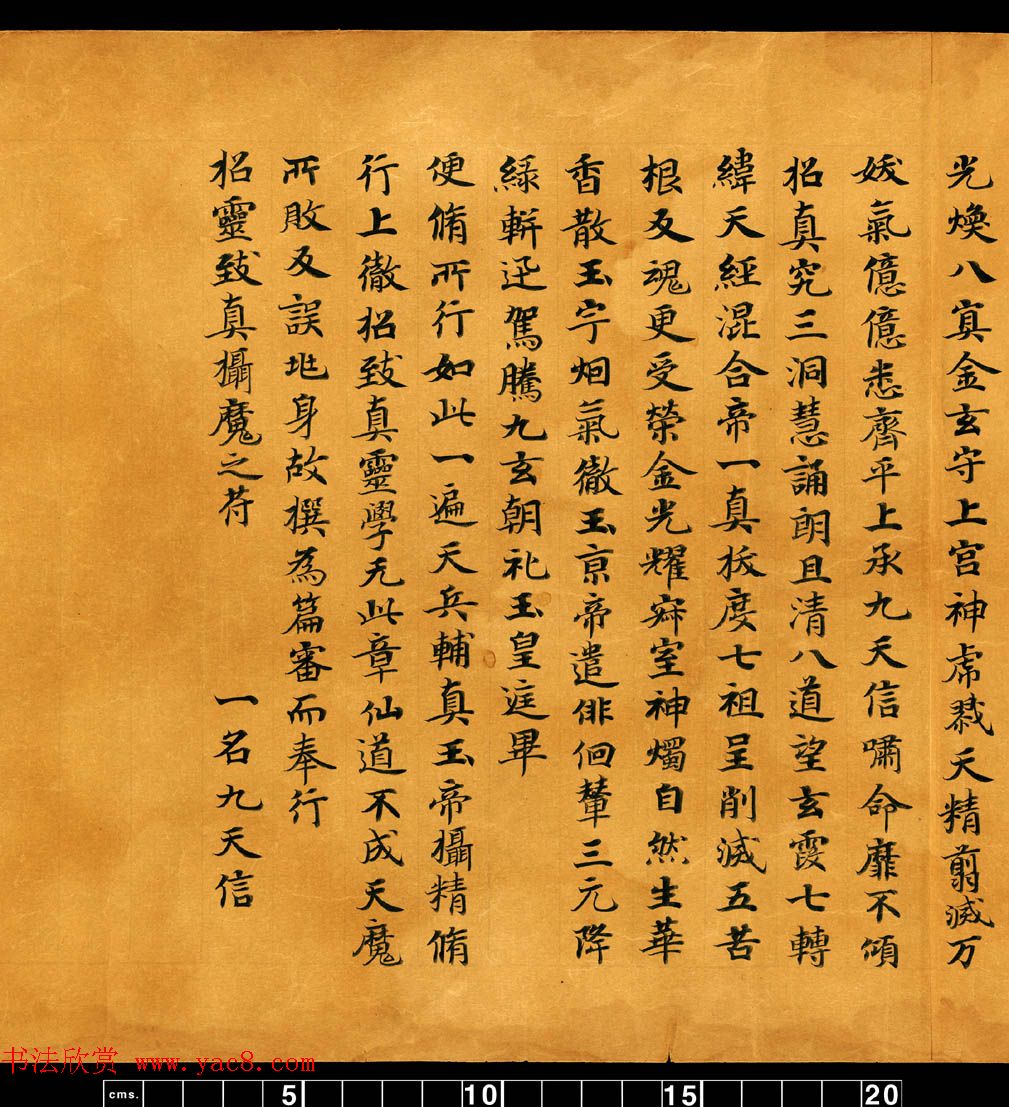 光煥八寘金玄守上宮神虎戮天精翦滅万
妖氣億億悉齊平上承九天信嘯命靡不傾
招真究三洞慧誦朗且清八道望玄霞七轉
緯天經混合帝一真拔度七祖呈削滅五苦
根反魂更受榮金光耀寂室神燭自然生華
香散玉宇烟氣徹玉京帝遣俳佪輦三元降
綠軿迅駕騰九玄朝礼玉皇遅畢
便脩所行如此一遍天兵輔真玉帝攝精脩
行上徹招致真靈學无此章仙道不成天魔
所敗反誤兆身故撰為篇審而奉行
招靈致真攝魔之苻 一名九天信
书法欣赏 www.yac8.com
cms. 5 10 15 20